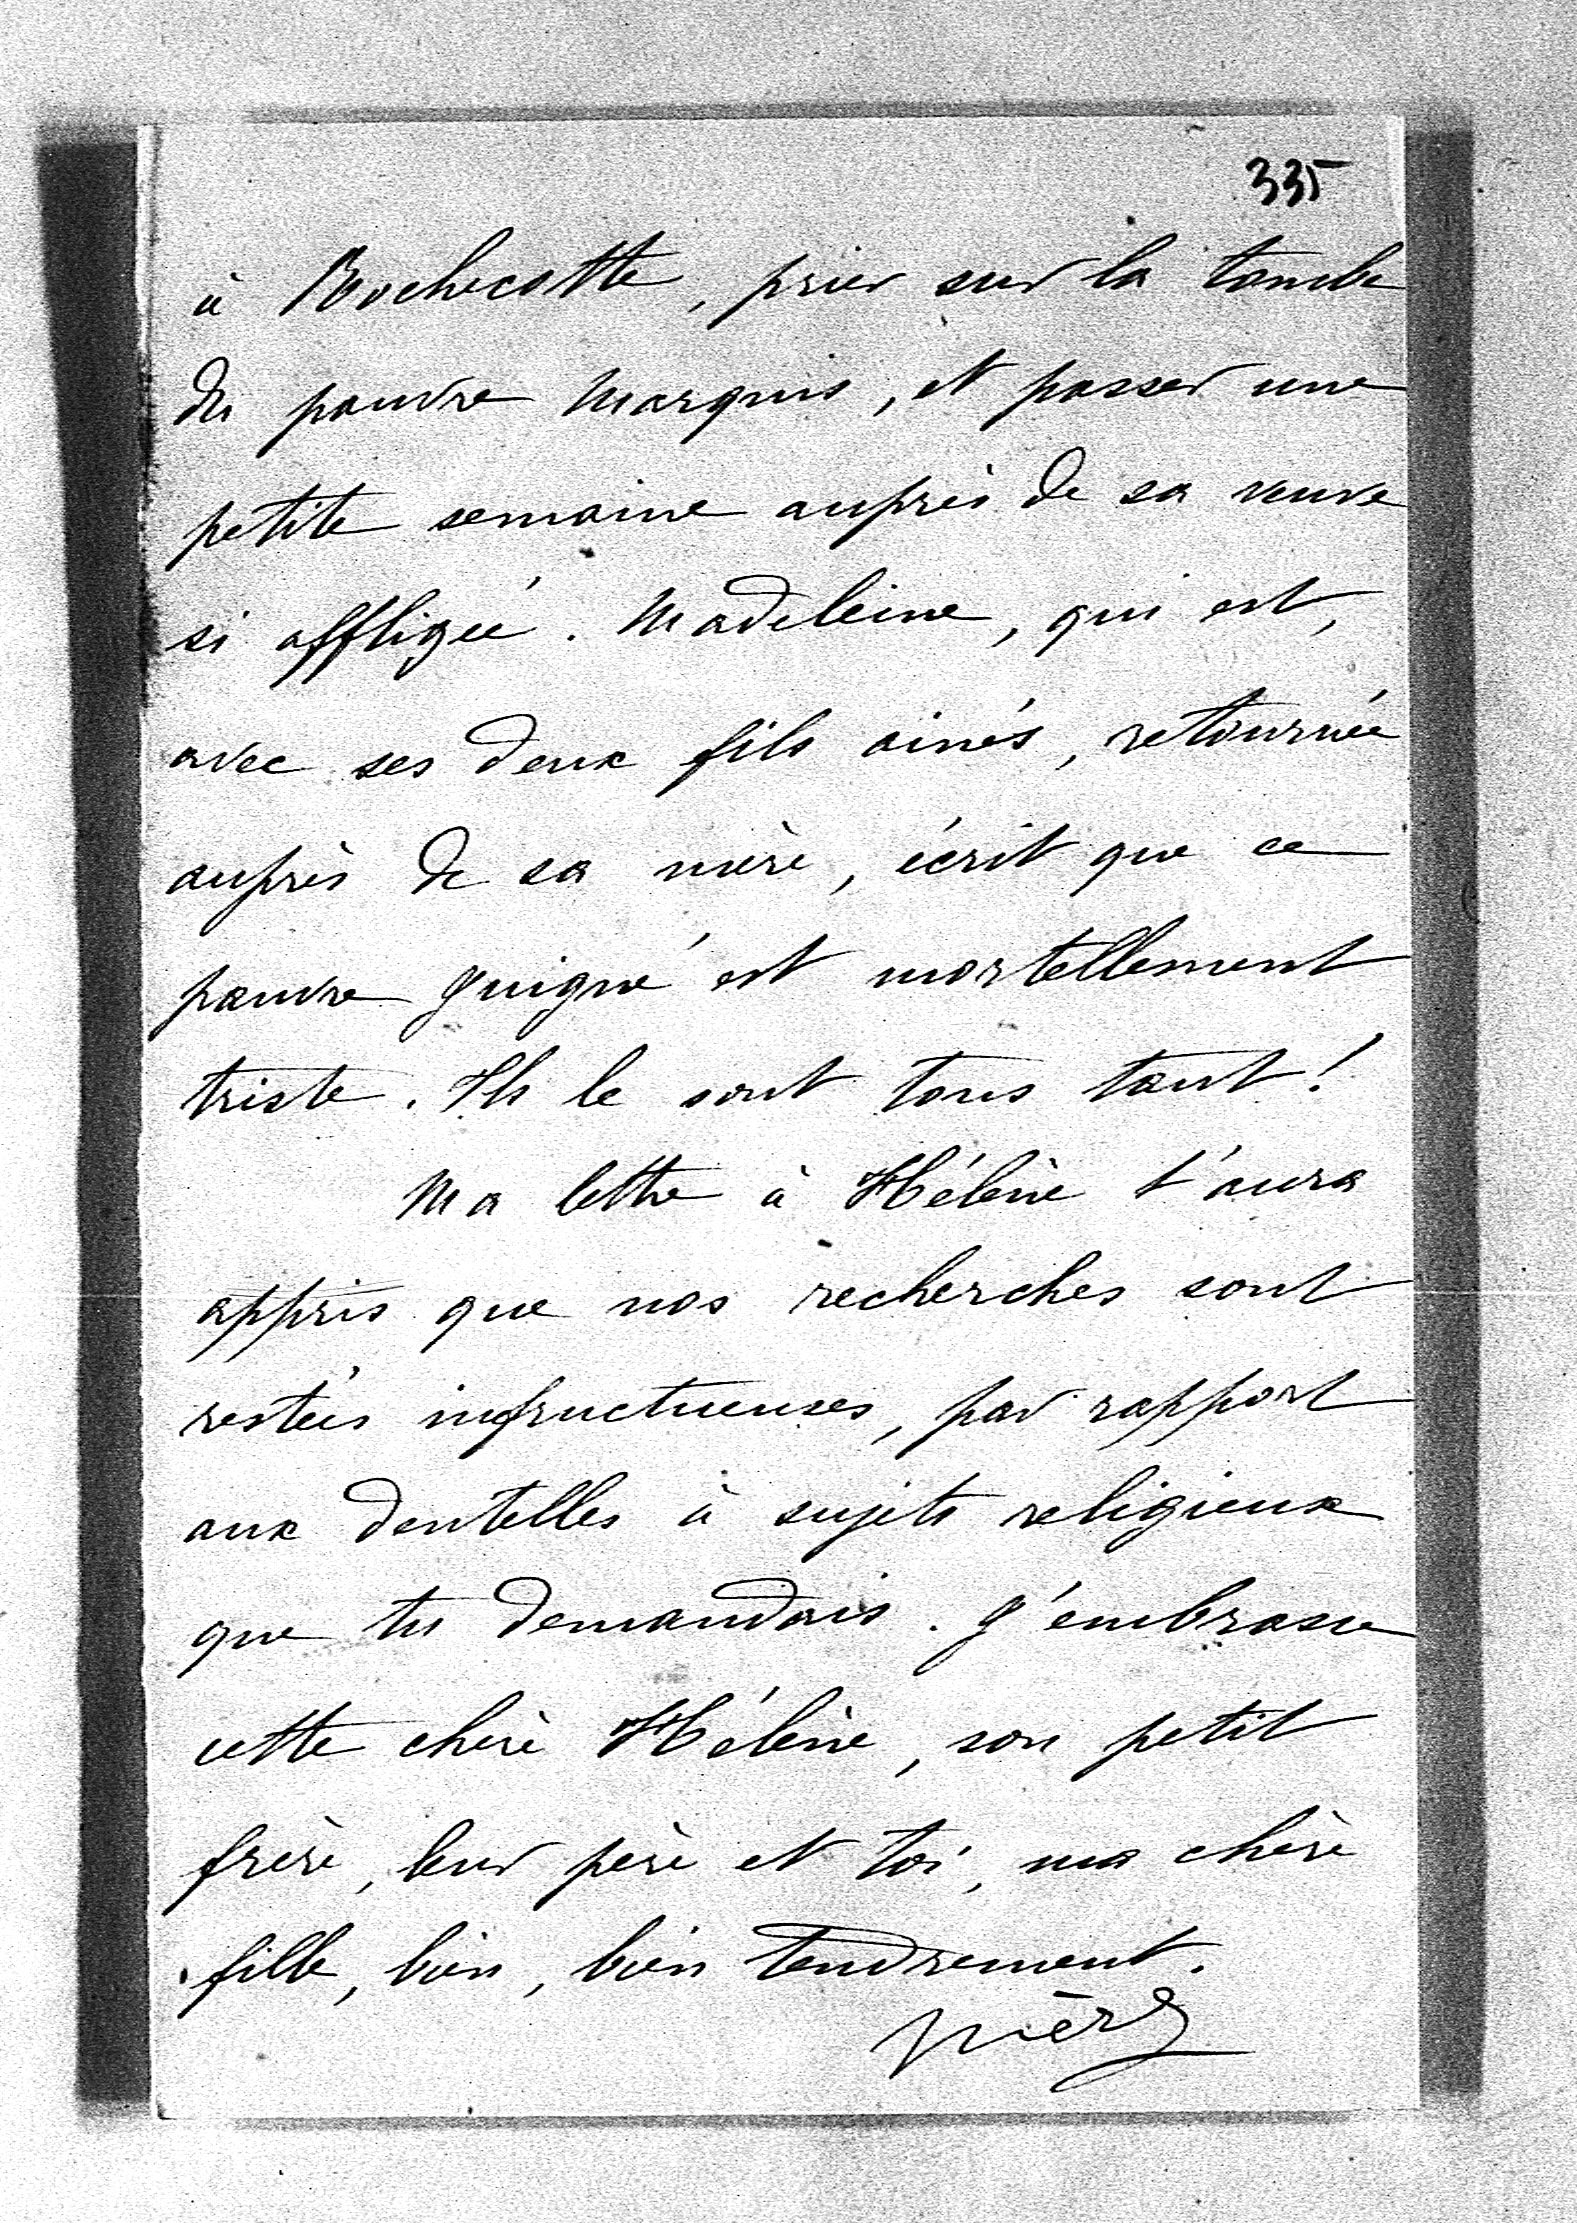 335
à Rochecotte, prier sur la tombe
du pauvre Marquis, et passer une
petite semaine auprès de sa veuve
si affligée. Madeleine, qui est,
avec ses deux fils ainés, retournée
auprès de sa mère, écrit que ce
pauvre Guigné est mortellement
triste. Ils le sont tous tant!
Ma lettre à Hélène t'aura
appris que nos recherches sont
restées infructueuses, par rapport
aux dentelles à sujets religieux
que tu demandais. J'embrasse
cette chère Hélène, son petit
frère, leur père et toi, ma chère
fille, bien, bien tendrement.
Mère